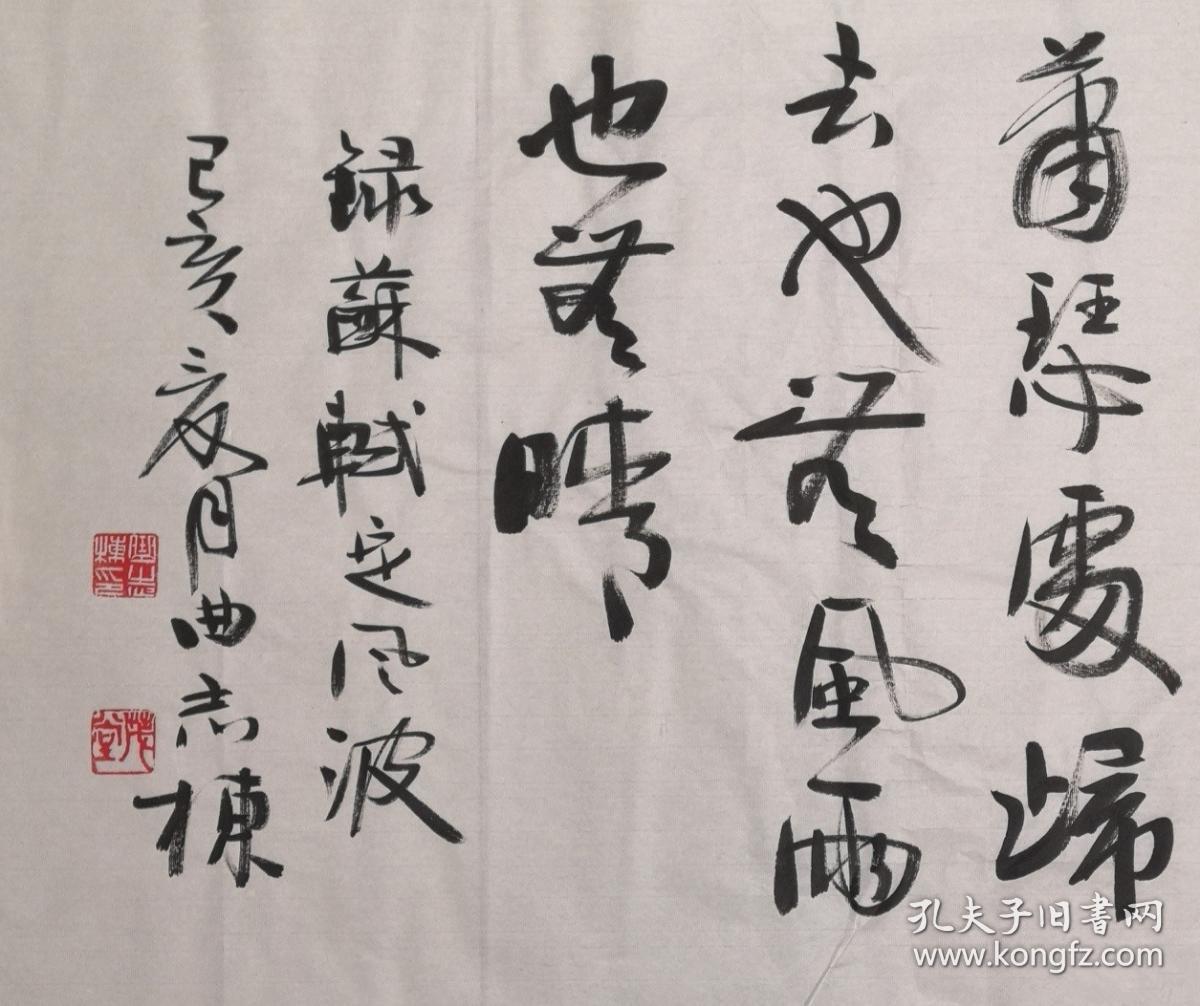 蕭瑟處歸
去也無風雨
也無晴
録蘇軾定风波
己亥夏月曲志棟
曲志棟印
孔夫子旧书网
www.kongfz.com